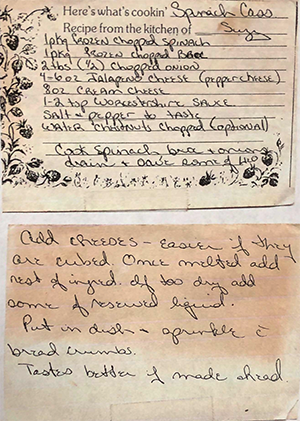 Here's what's cookin' Spinach Cass
Recipe from the kitchen of Suzy
1 pkg frozen chopped spinach
1 pkg frozen chopped
2 tbls (½) chopped onion
4-6 oz Jalapeno cheese (pepper cheese)
8 oz cream cheese
1-2 tsp Worcestershire sauce
Salt & pepper to taste
Water chestnuts chopped (optional)
Cook spinach & onion
drain & save some of H2O
Add cheeses - easier if they
are cubed. Once melted add
rest of ingred. If too dry add
some of reserved liquid.
Put in dish & sprinkle c̄
bread crumbs.
Tastes better if made ahead.